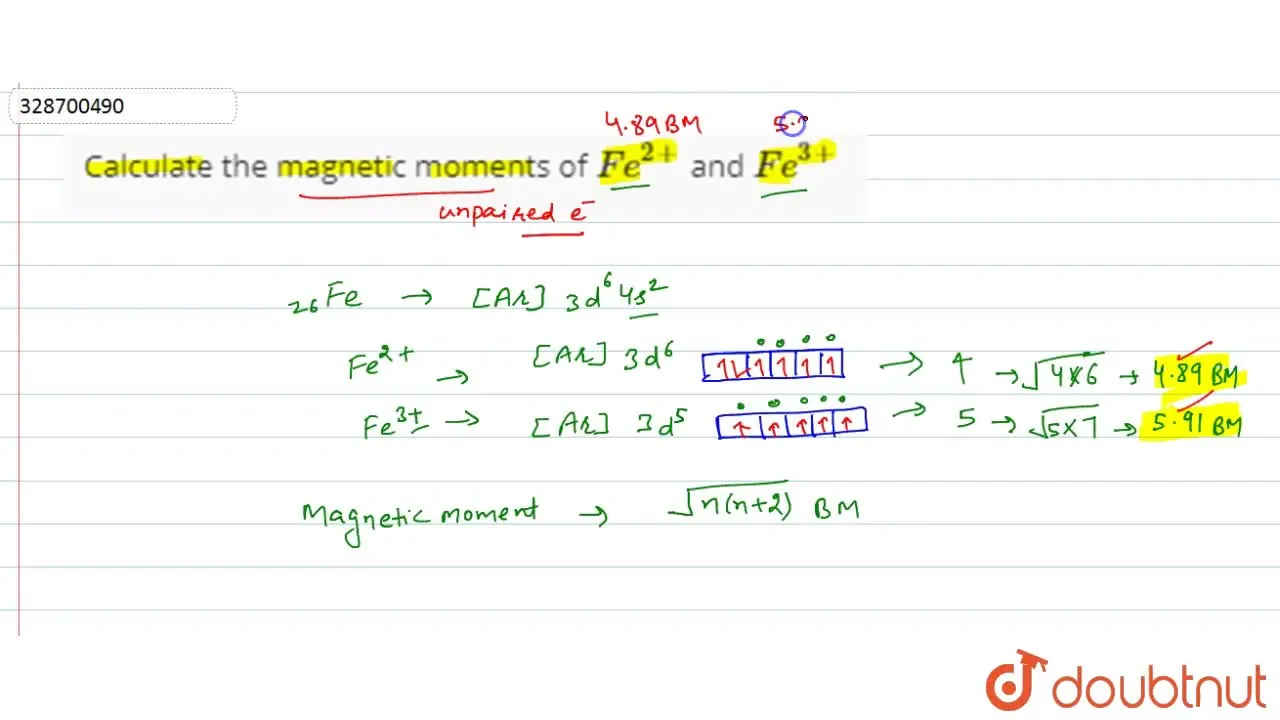 328700490
4.89 BM 5.9
Calculate the magnetic moments of Fe²⁺ and Fe³⁺
unpaired e⁻
₂₆Fe → [Ar] 3d⁶ 4s²
Fe²⁺ → [Ar] 3d⁶ ↑↓ ↑ ↑ ↑ ↑ → 4 → √4×6 → 4.89 BM
Fe³⁺ → [Ar] 3d⁵ ↑ ↑ ↑ ↑ ↑ → 5 → √5×7 → 5.91 BM
Magnetic moment → √n(n+2) BM
doubtnut